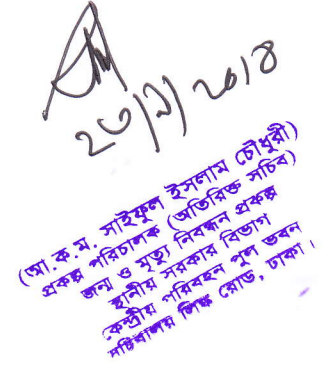 ২৩/২/২০১৪
(আ.ক.ম. সাইফুল ইসলাম চৌধুরী)
প্রকল্প পরিচালক (অতিরিক্ত সচিব)
জন্ম ও মৃত্যু নিবন্ধন প্রকল্প
স্থানীয় সরকার বিভাগ
কেন্দ্রীয় পরিবহন পুল ভবন
সচিবালয় লিঙ্ক রোড, ঢাকা।